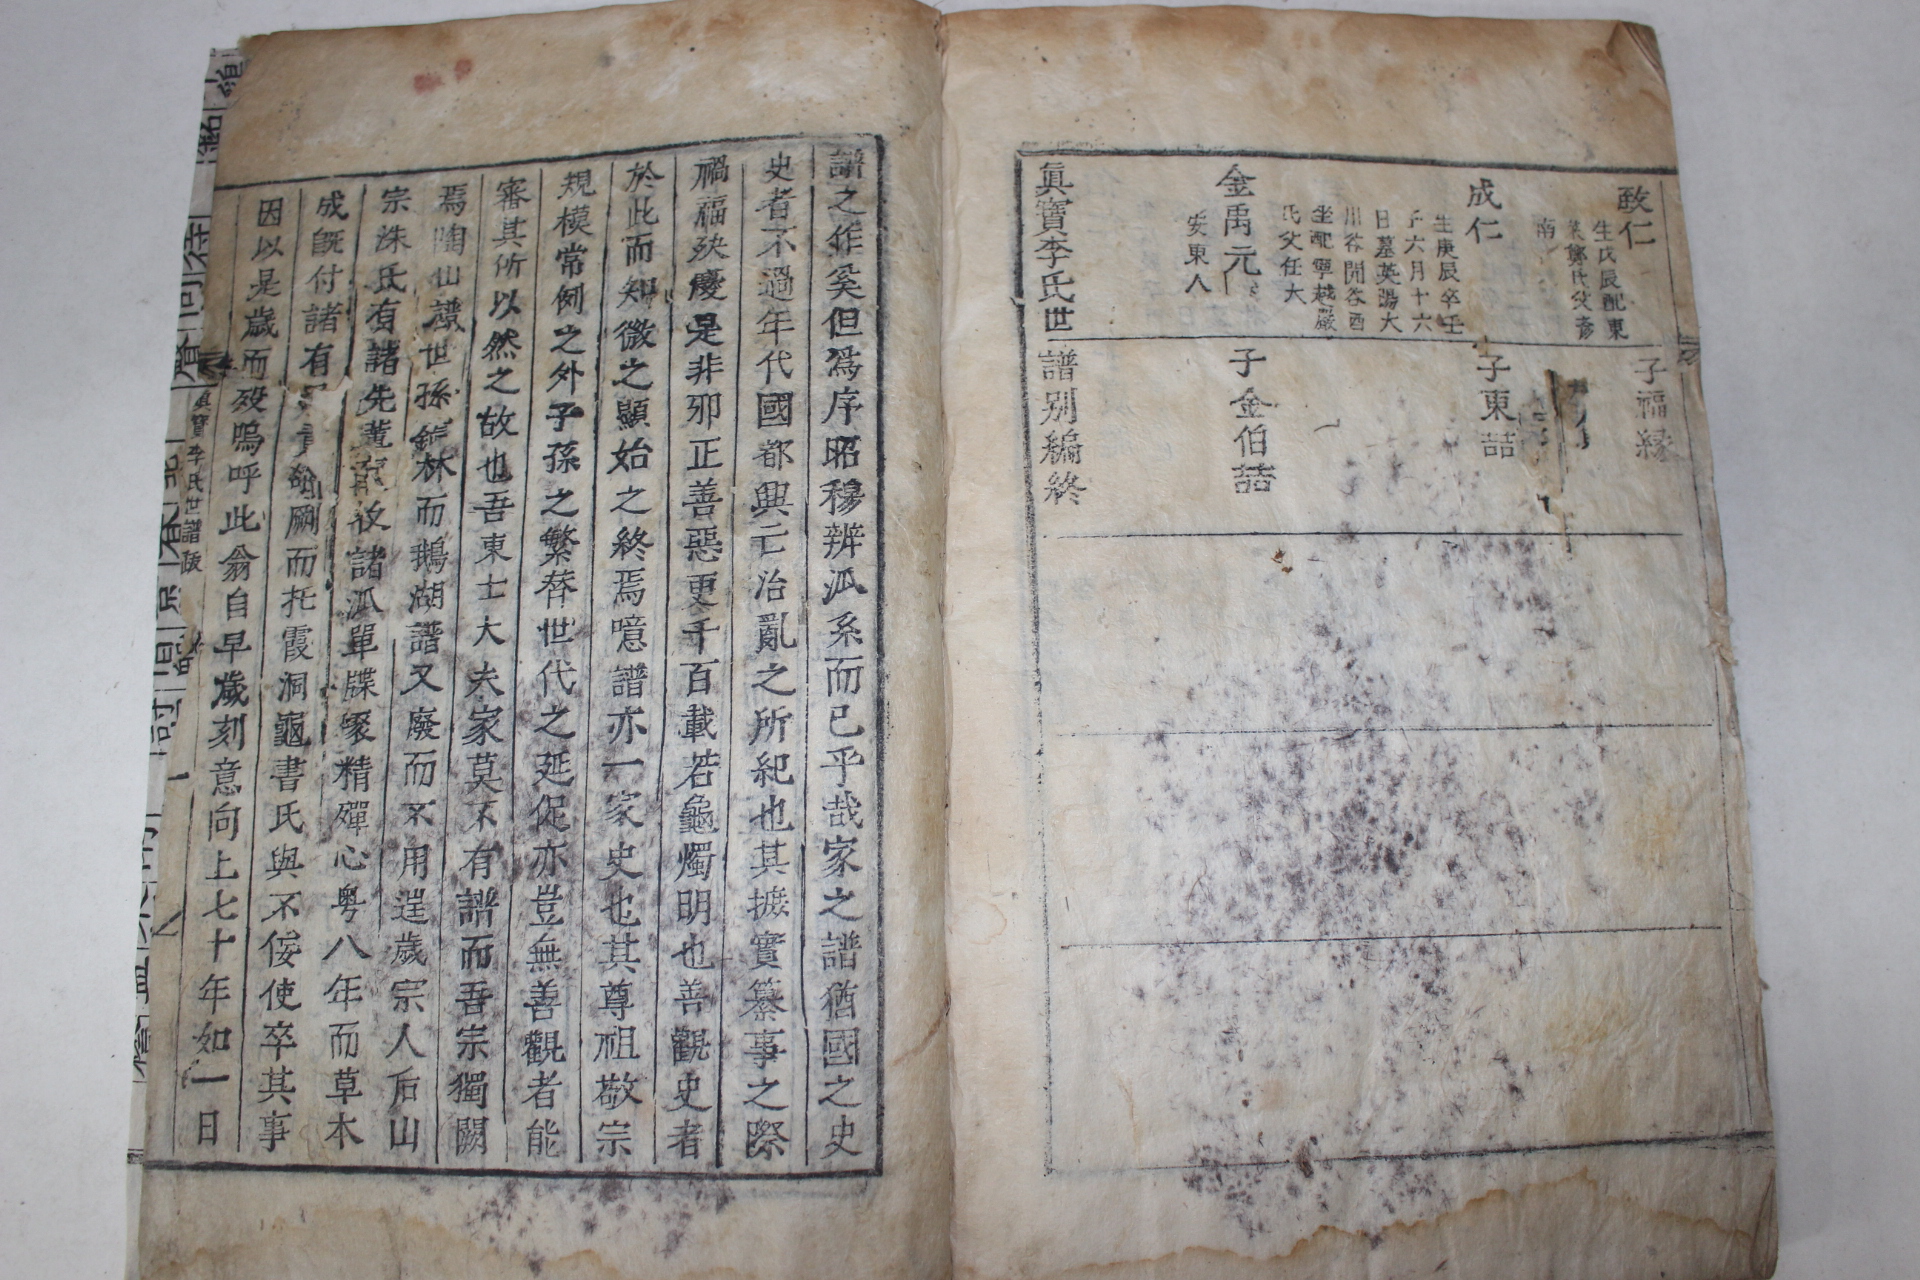 致仁
生戊辰配東
萊鄭氏父彥
南
子福緣
成仁
生庚辰卒壬
子六月十六
日墓英陽大
川谷開谷酉
坐配寧越嚴
氏父任大
子東喆
金禹元
安東人
子金伯喆
眞寶李氏世譜別編終
譜之作奚但爲序昭穆辨派系而已乎哉家之譜猶國之史
史者不過年代國都興亡治亂之所紀也其摭實纂事之際
禍福殃慶是非邪正善惡更千百載若龜燭明也善觀史者
於此而知微之顯始之終焉噫譜亦一家史也其尊祖敬宗
規模常例之外子孫之繁替世代之延促亦豈無善觀者能
審其所以然之故也吾東士大夫家莫不有譜而吾宗獨闕
焉陶山譜世孫鎭林而鵝湖譜又廢而不用逞歲宗人后山
宗洙氏有諸先輩諸派單牒家精殫心粤八年而草本
成旣付諸有剞厥而托霞洞龜書氏與不佞使卒其事
因以是歲而歿嗚呼此翁自早歲刻意向上七十年如一日
眞寶李氏世譜跋